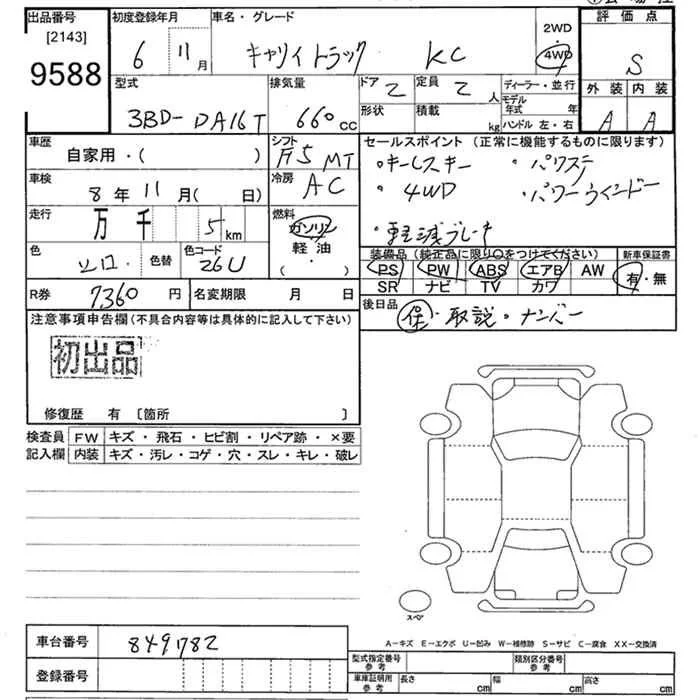 出品番号
[2143]
9588
初度登録年月
6 11月
車名・グレード
キャリイトラック KC
2WD
・
4WD
評価点
S
外装 内装
A A
型式
3BD-DA16T
排気量
660cc
ドア 2
定員 2人
形状
積載 kg
ディーラー・並行
モデル年式 年
ハンドル 左・右
車歴
自家用・( )
シフト
F5 MT
車検
8年11月( 日)
冷房
AC
走行
万 千 5km
燃料
ガソリン
軽油
・( )
色
シロ
色替
色コード
26U
R券 7360円
名変期限 月 日
セールスポイント(正常に機能するものに限ります)
・キーレスキー ・パワステ
・4WD ・パワーウインドー
・軽減ブレーキ
装備品(純正品に限り○をつけてください)
PS PW ABS エアB AW
SR ナビ TV カワ
新車保証書
有・無
後日品
保・取説・ナンバー
注意事項申告欄(不具合内容等は具体的に記入して下さい)
初出品
修復歴 有 [箇所 ]
検査員
記入欄
FW キズ・飛石・ヒビ割・リペア跡・×要
内装 キズ・汚レ・コゲ・穴・スレ・キレ・破レ
スペア
車台番号 849782
登録番号
A-キズ E-エクボ U-凹み W-補修跡 S-サビ C-腐食 XX-交換済
型式指定番号
参考
類別区分番号
参考
車庫証明用
参考
長さ cm
幅 cm
高さ cm